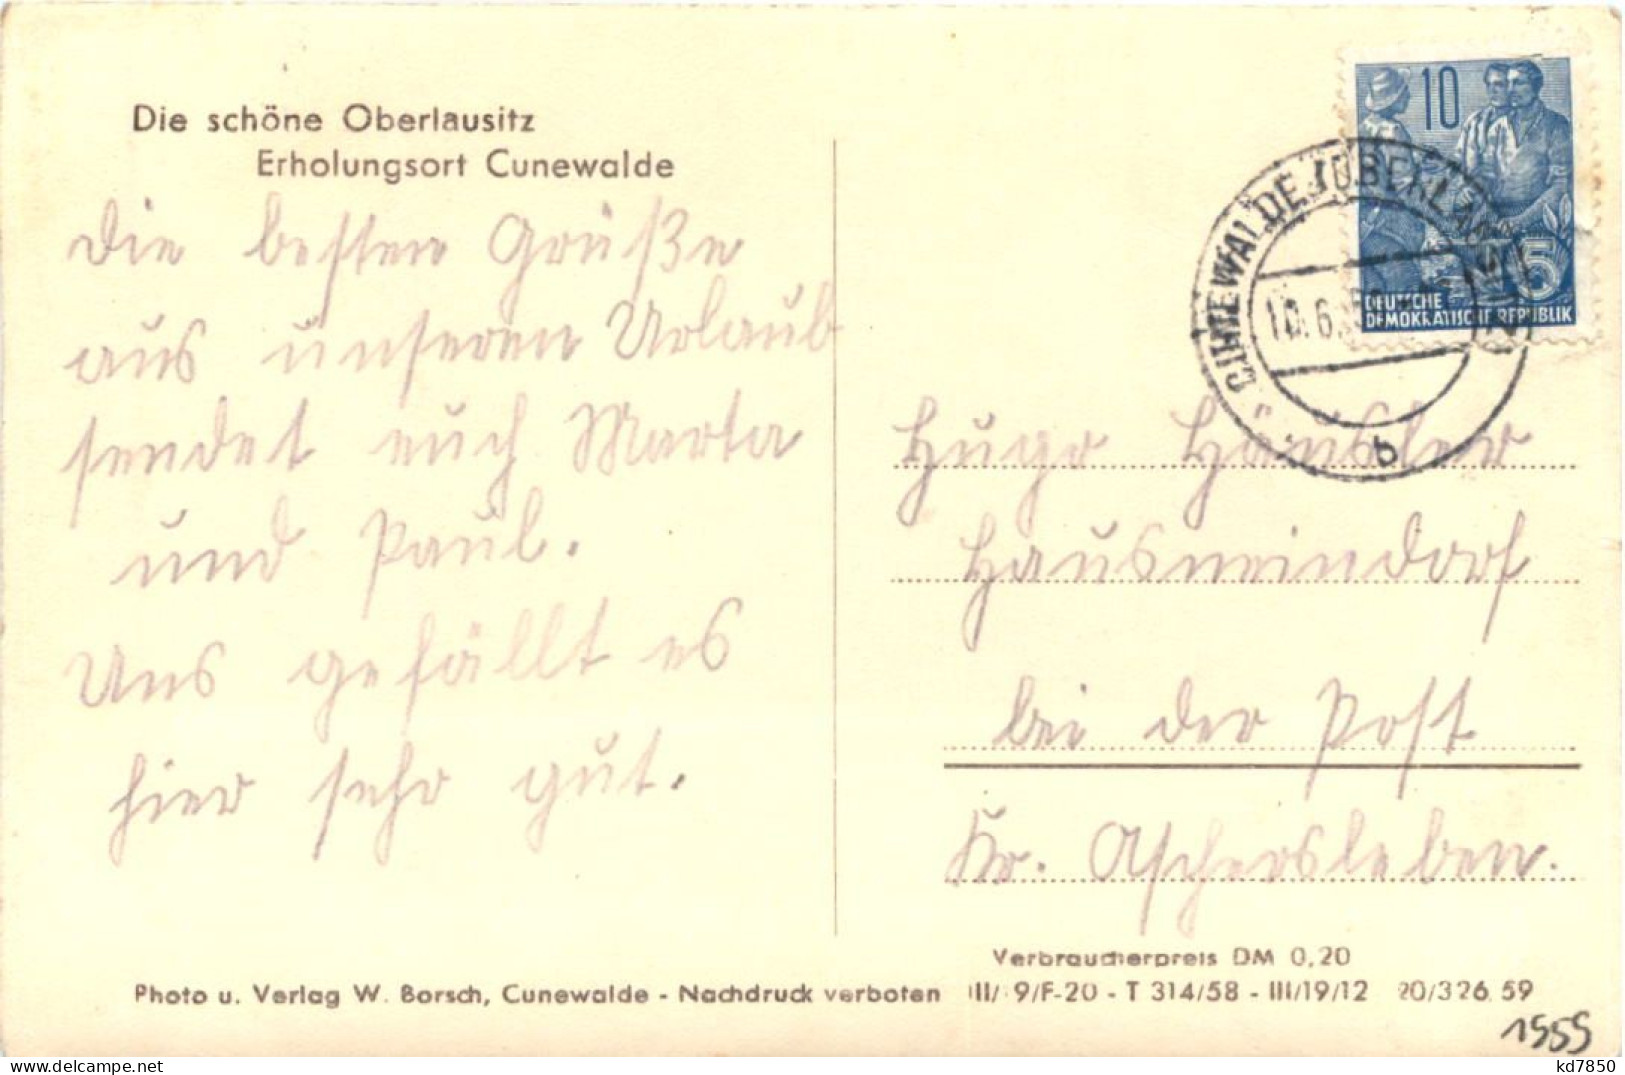 Die schöne Oberlausitz
Erholungsort Cunewalde
Die besten Grüße
aus unseren Urlaub
sendet euch Marta
und Paul.
Uns gefällt es
hier sehr gut.
10
5
DEUTSCHE
DEMOKRATISCHE REPUBLIK
CUNEWALDE (OBERLAUSITZ)
10.6.
b
Hugo Hänsler
Hausneindorf
bei der Post
Kr. Aschersleben.
Verbraucherpreis DM 0,20
Photo u. Verlag W. Borsch, Cunewalde - Nachdruck verboten III/ 9/F-20 - T 314/58 - III/19/12 20/326 59
1959
kd7850